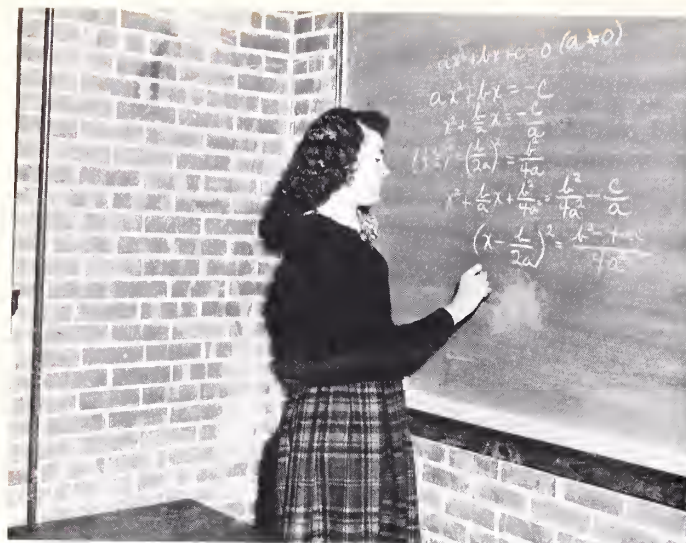 ax²+bx+c=0 (a≠0)
ax²+bx=-c
x²+b/a x=-c/a
(b/2a)²=b²/4a²
x²+b/a x+b²/4a²=b²/4a²-c/a
(x-b/2a)²=